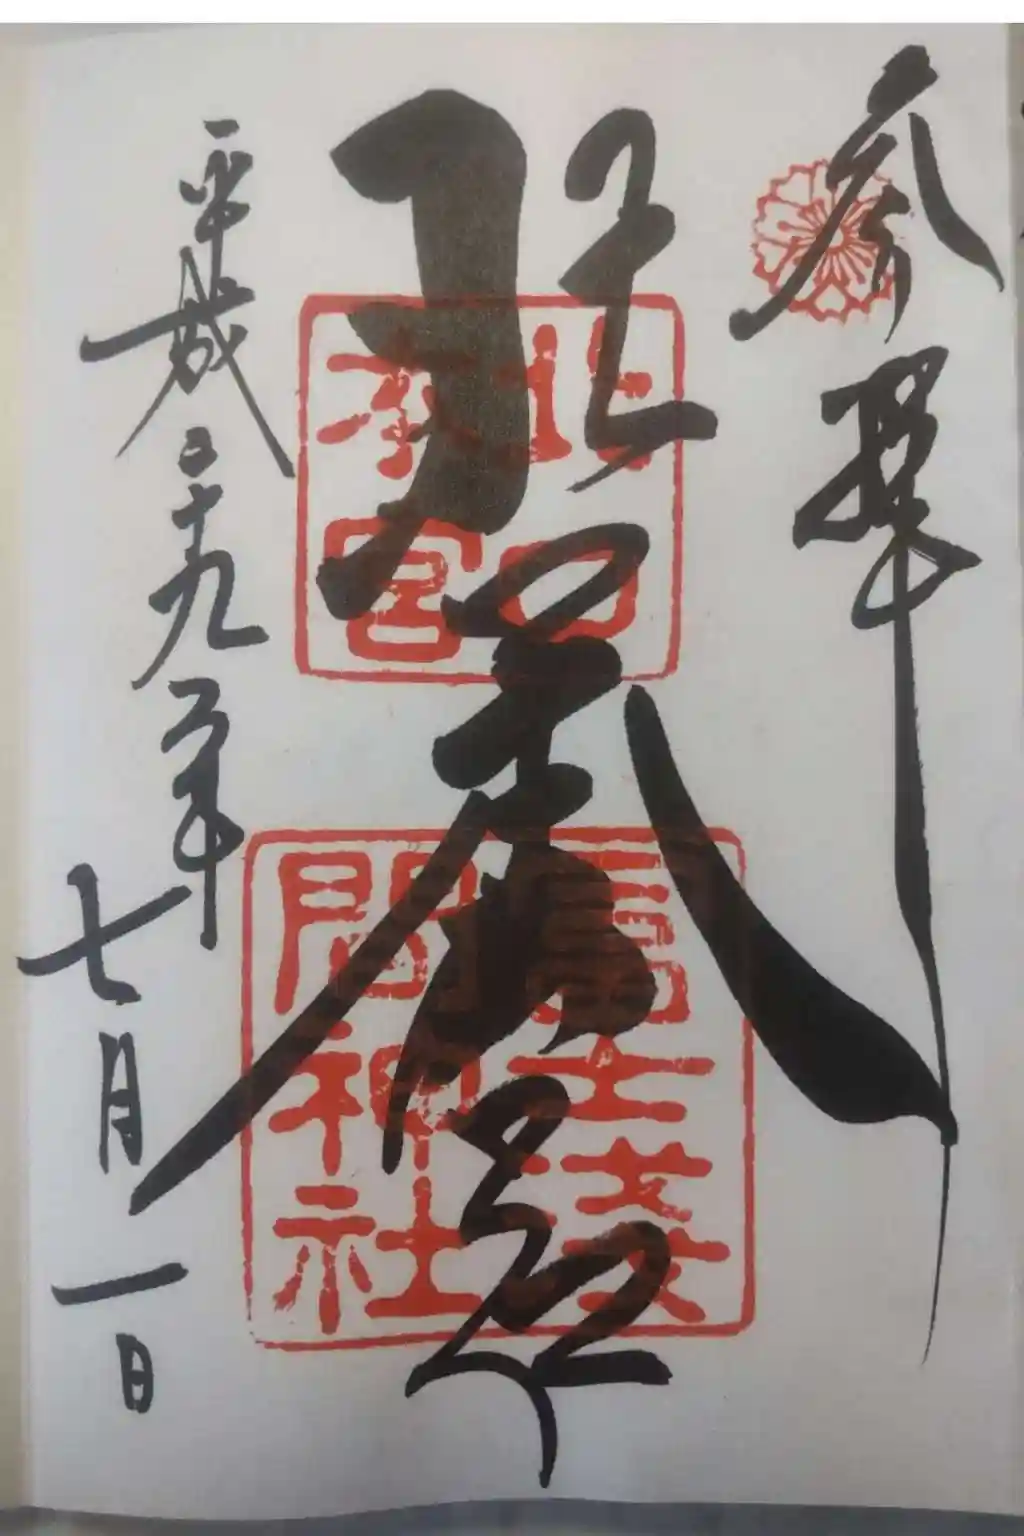 参拝
北口
本宮
冨士浅
間神社
平成二十九年
七月一日